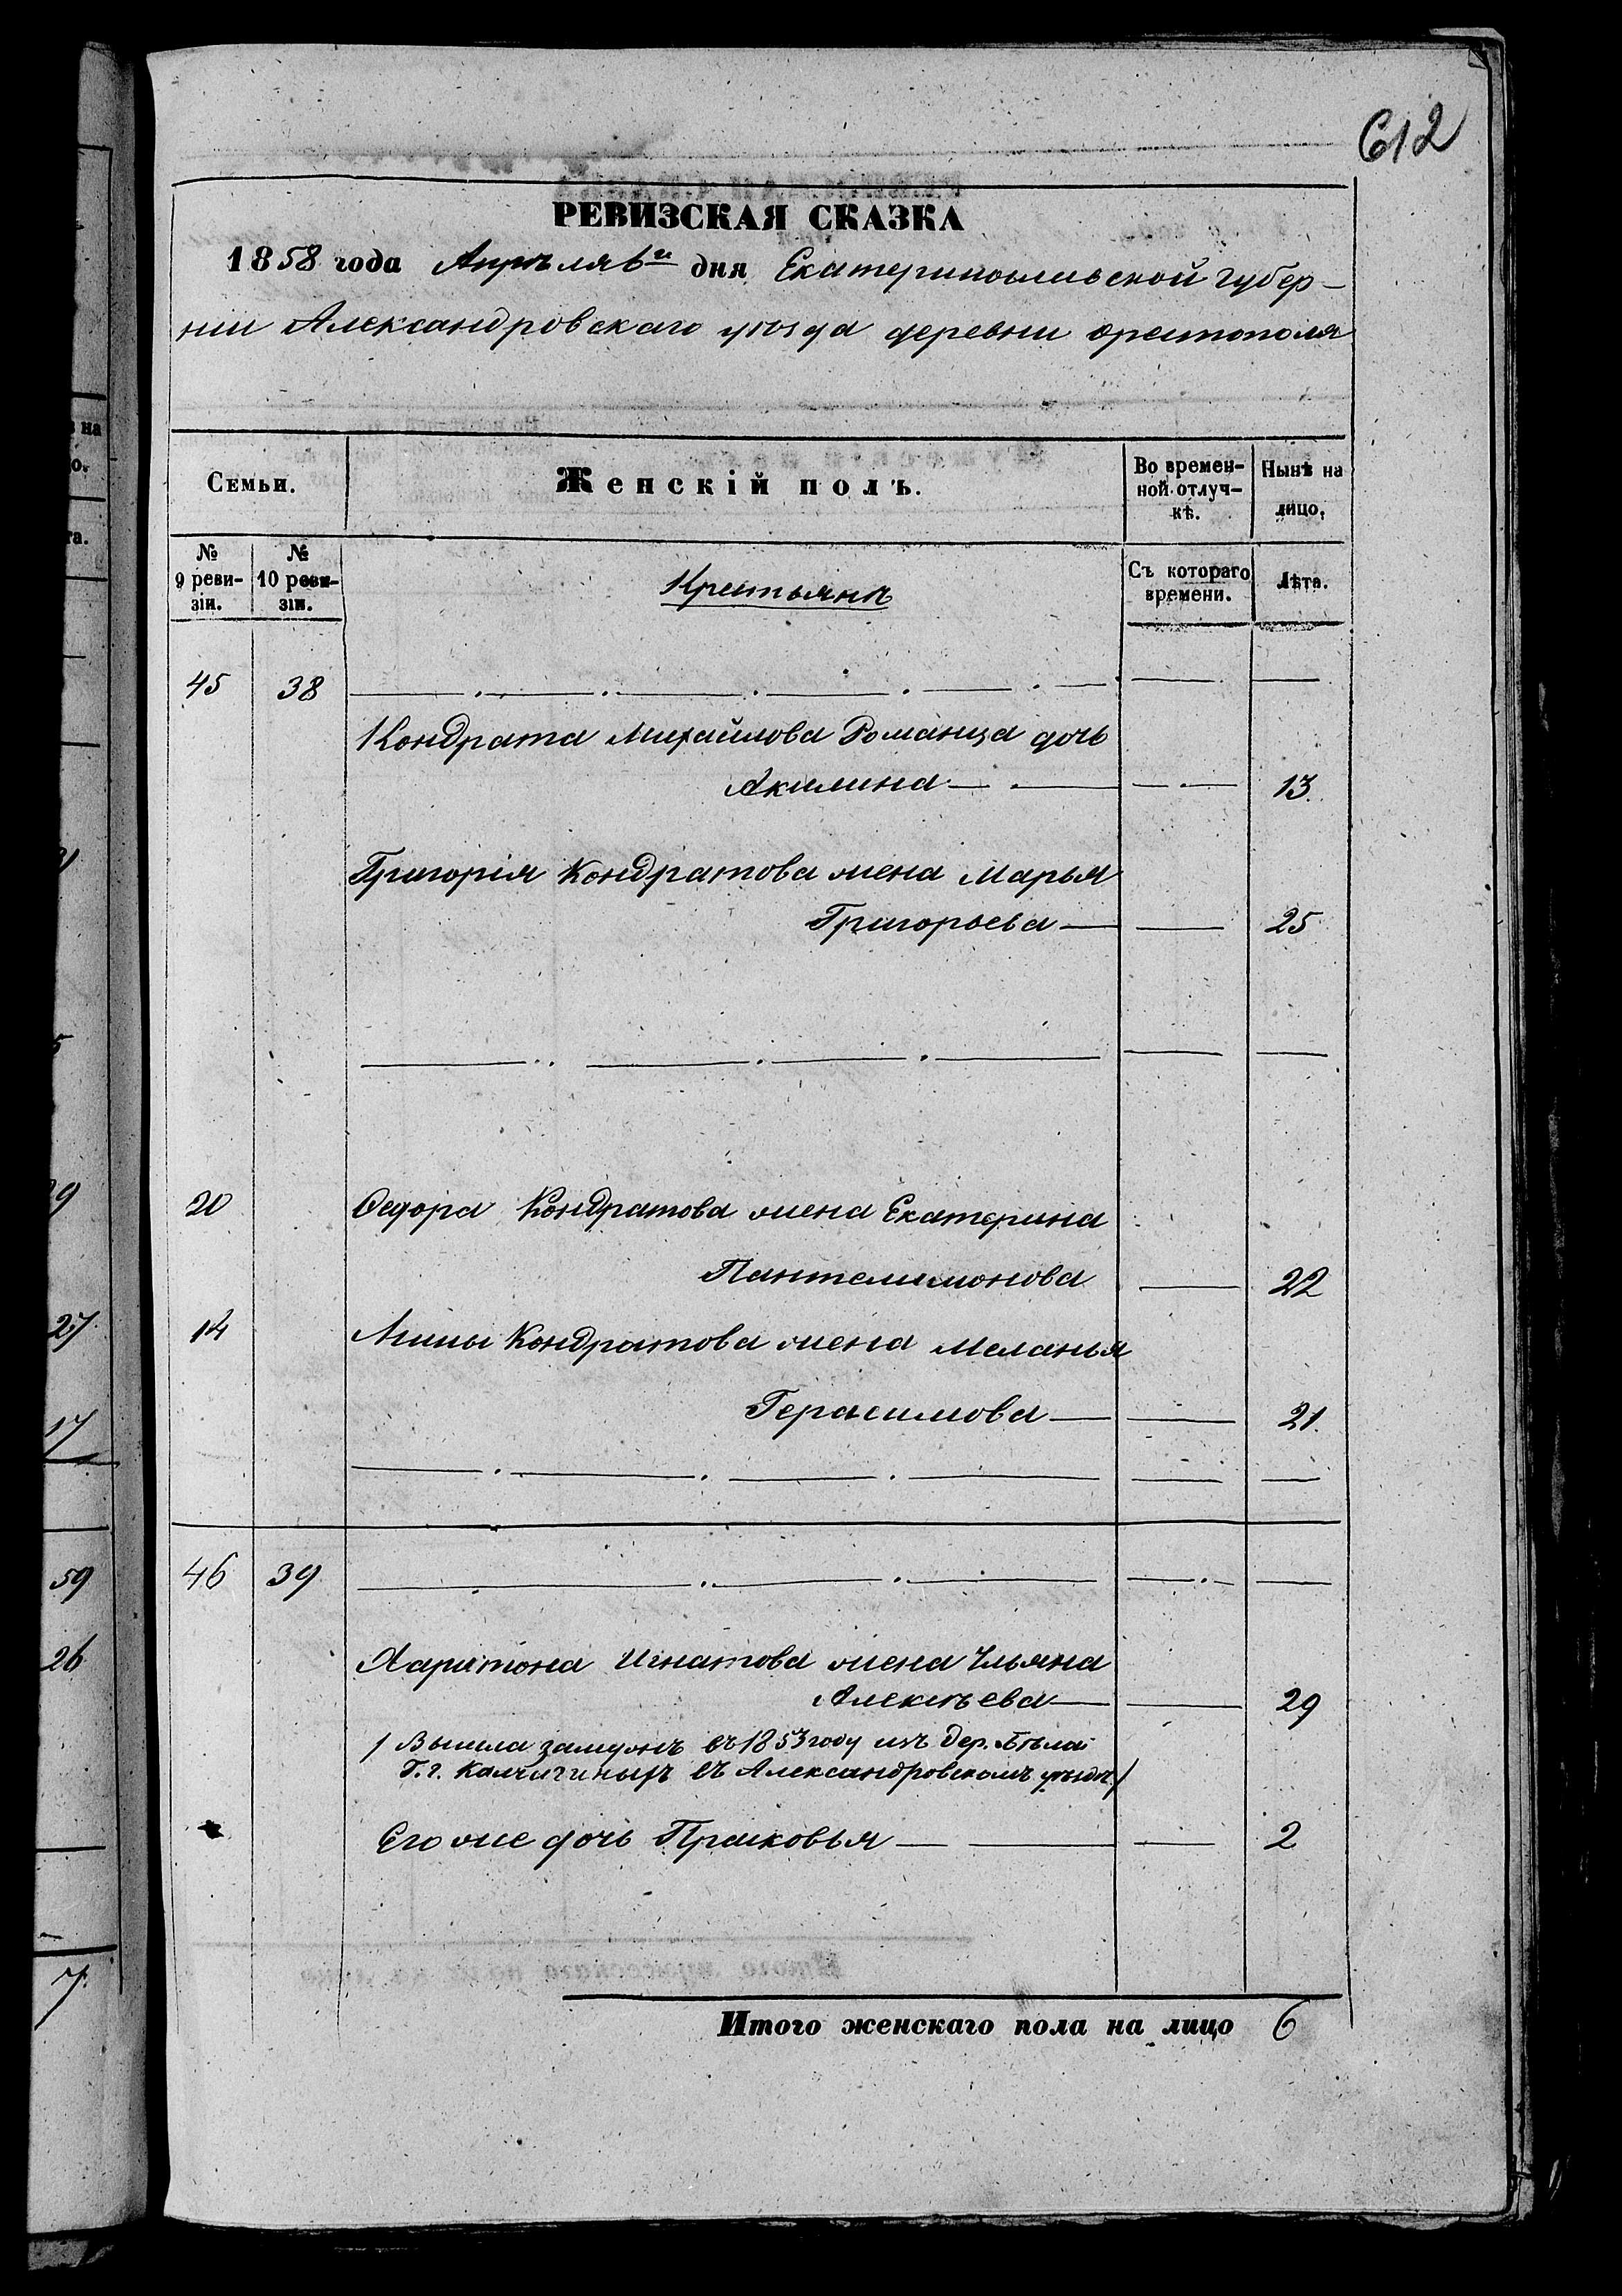 612
РЕВИЗСКАЯ СКАЗКА
1858 года Апрѣля 6го дня Екатеринославской губер-
нии Александровскаго уѣзда деревни Орестополя
Семьи. Женскій полъ. Во времен-ной отлуч-кѣ. Нынѣ на лицо.
№ 9 реви-зіи. № 10 реви-зіи. Крестьянѣ Съ котораго времени. Лѣта.
45 38
Кондрата Михайлова Романца дочь
Акилина 13.
Григорія Кондратова жена Марья
Григорьева 25
20 Федора Кондратова жена Екатерина
Пантелимонова 22
14 Мины Кондратова жена Меланья
Герасимова 21.
46 39
Харитона Игнатова жена Ульяна
Алексѣева 29
/ Вышла замужъ въ 1853 году изъ дер. Бѣлой
Г. г. Калчигиныхъ въ Александровскомъ уѣздѣ /
Его же дочь Прасковья 2
Итого женскаго пола на лицо 6
на
о.
та.
9
27
17
59
26
7.